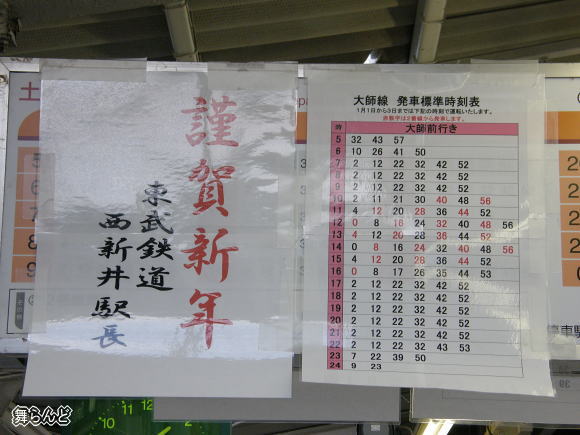 謹賀新年
東武鉄道
西新井駅長
大師線 発車標準時刻表
1月1日から3日までは下記の時刻で運転いたします。
赤数字は2番線から発車します。
時 大師前行き
5 32 43 57
6 10 26 41 50
7 2 12 22 32 42 52
8 2 12 22 32 42 52
9 2 12 22 32 42 52
10 2 11 21 30 40 48 56
11 4 12 20 28 36 44 52
12 0 8 16 24 32 40 48 56
13 4 12 20 28 36 44 52
14 0 8 16 24 32 40 48 56
15 4 12 20 28 36 44 52
16 0 8 17 26 35 44 53
17 2 12 22 32 42 52
18 2 12 22 32 42 52
19 2 12 22 32 42 52
20 2 12 22 32 42 52
21 2 12 22 32 42 52
22 2 12 22 32 42 53
23 7 22 39 50
24 9 23
土
停車駅
10 11 12
舞らんど